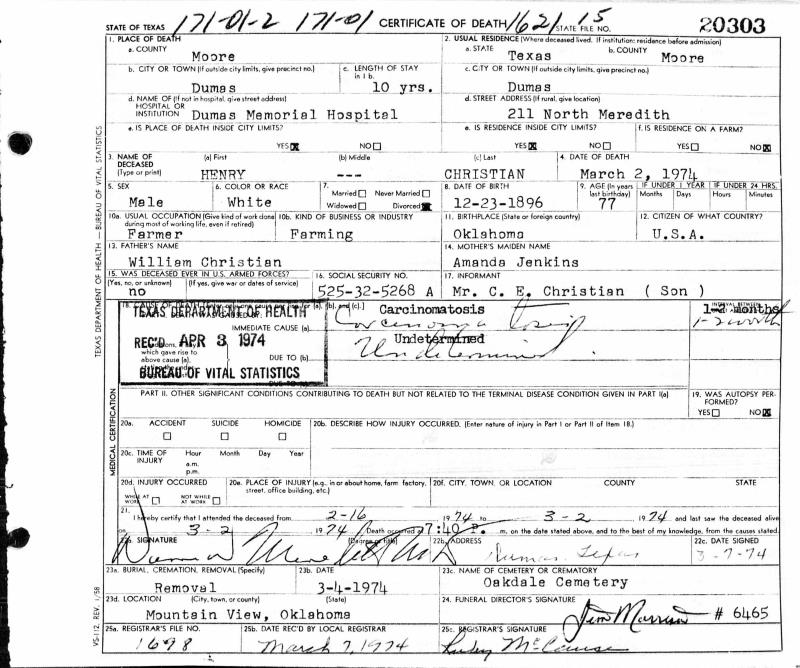 171-01-2 171-01 CERTIFICATE OF DEATH 1621 15
STATE OF TEXAS STATE FILE NO. 20303
1. PLACE OF DEATH
a. COUNTY
Moore
2. USUAL RESIDENCE (Where deceased lived. If institution: residence before admission)
a. STATE b. COUNTY
Texas Moore
b. CITY OR TOWN (If outside city limits, give precinct no.)
Dumas
c. LENGTH OF STAY in 1 b.
10 yrs.
c. CITY OR TOWN (If outside city limits, give precinct no.)
Dumas
d. NAME OF (If not in hospital, give street address)
HOSPITAL OR
INSTITUTION Dumas Memorial Hospital
d. STREET ADDRESS (If rural, give location)
211 North Meredith
e. IS PLACE OF DEATH INSIDE CITY LIMITS?
YES NO
e. IS RESIDENCE INSIDE CITY LIMITS?
YES NO
f. IS RESIDENCE ON A FARM?
YES NO
3. NAME OF DECEASED (Type or print)
(a) First (b) Middle (c) Last
HENRY --- CHRISTIAN
4. DATE OF DEATH
March 2, 1974
5. SEX
Male
6. COLOR OR RACE
White
7.
Married Never Married
Widowed Divorced
8. DATE OF BIRTH
12-23-1896
9. AGE (In years last birthday)
77
IF UNDER 1 YEAR
Months Days
IF UNDER 24 HRS.
Hours Minutes
10a. USUAL OCCUPATION (Give kind of work done during most of working life, even if retired)
Farmer
10b. KIND OF BUSINESS OR INDUSTRY
Farming
11. BIRTHPLACE (State or foreign country)
Oklahoma
12. CITIZEN OF WHAT COUNTRY?
U.S.A.
13. FATHER'S NAME
William Christian
14. MOTHER'S MAIDEN NAME
Amanda Jenkins
15. WAS DECEASED EVER IN U.S. ARMED FORCES?
(Yes, no, or unknown) (If yes, give war or dates of service)
no
16. SOCIAL SECURITY NO.
525-32-5268 A
17. INFORMANT
Mr. C. E. Christian ( Son )
TEXAS DEPARTMENT OF HEALTH
REC'D APR 3 1974
BUREAU OF VITAL STATISTICS
IMMEDIATE CAUSE (a)
which gave rise to
above cause (a),
DUE TO (b)
Carcinomatosis
Undetermined
Undetermined
1-2 months
1-2 month
PART II. OTHER SIGNIFICANT CONDITIONS CONTRIBUTING TO DEATH BUT NOT RELATED TO THE TERMINAL DISEASE CONDITION GIVEN IN PART I(a)
19. WAS AUTOPSY PERFORMED?
YES NO
MEDICAL CERTIFICATION
20a. ACCIDENT SUICIDE HOMICIDE
20b. DESCRIBE HOW INJURY OCCURRED. (Enter nature of injury in Part I or Part II of Item 18.)
20c. TIME OF INJURY
Hour Month Day Year
a.m.
p.m.
20d. INJURY OCCURRED
WHILE AT WORK NOT WHILE AT WORK
20e. PLACE OF INJURY (e.g., in or about home, farm, factory, street, office building, etc.)
20f. CITY, TOWN, OR LOCATION COUNTY STATE
21.
I hereby certify that I attended the deceased from 2-16 1974 to 3-2 1974 and last saw the deceased alive
on 3-2 1974 Death occurred at 7:40 P. m. on the date stated above, and to the best of my knowledge, from the causes stated.
22a. SIGNATURE (Degree or title)
22b. ADDRESS
Dumas, Texas
22c. DATE SIGNED
3-7-74
23a. BURIAL, CREMATION, REMOVAL (Specify)
Removal
23b. DATE
3-4-1974
23c. NAME OF CEMETERY OR CREMATORY
Oakdale Cemetery
23d. LOCATION (City, town, or county) (State)
Mountain View, Oklahoma
24. FUNERAL DIRECTOR'S SIGNATURE
Jim Morrison # 6465
25a. REGISTRAR'S FILE NO.
1698
25b. DATE REC'D BY LOCAL REGISTRAR
March 7, 1974
25c. REGISTRAR'S SIGNATURE
TEXAS DEPARTMENT OF HEALTH — BUREAU OF VITAL STATISTICS
VS-112, REV. 1/58